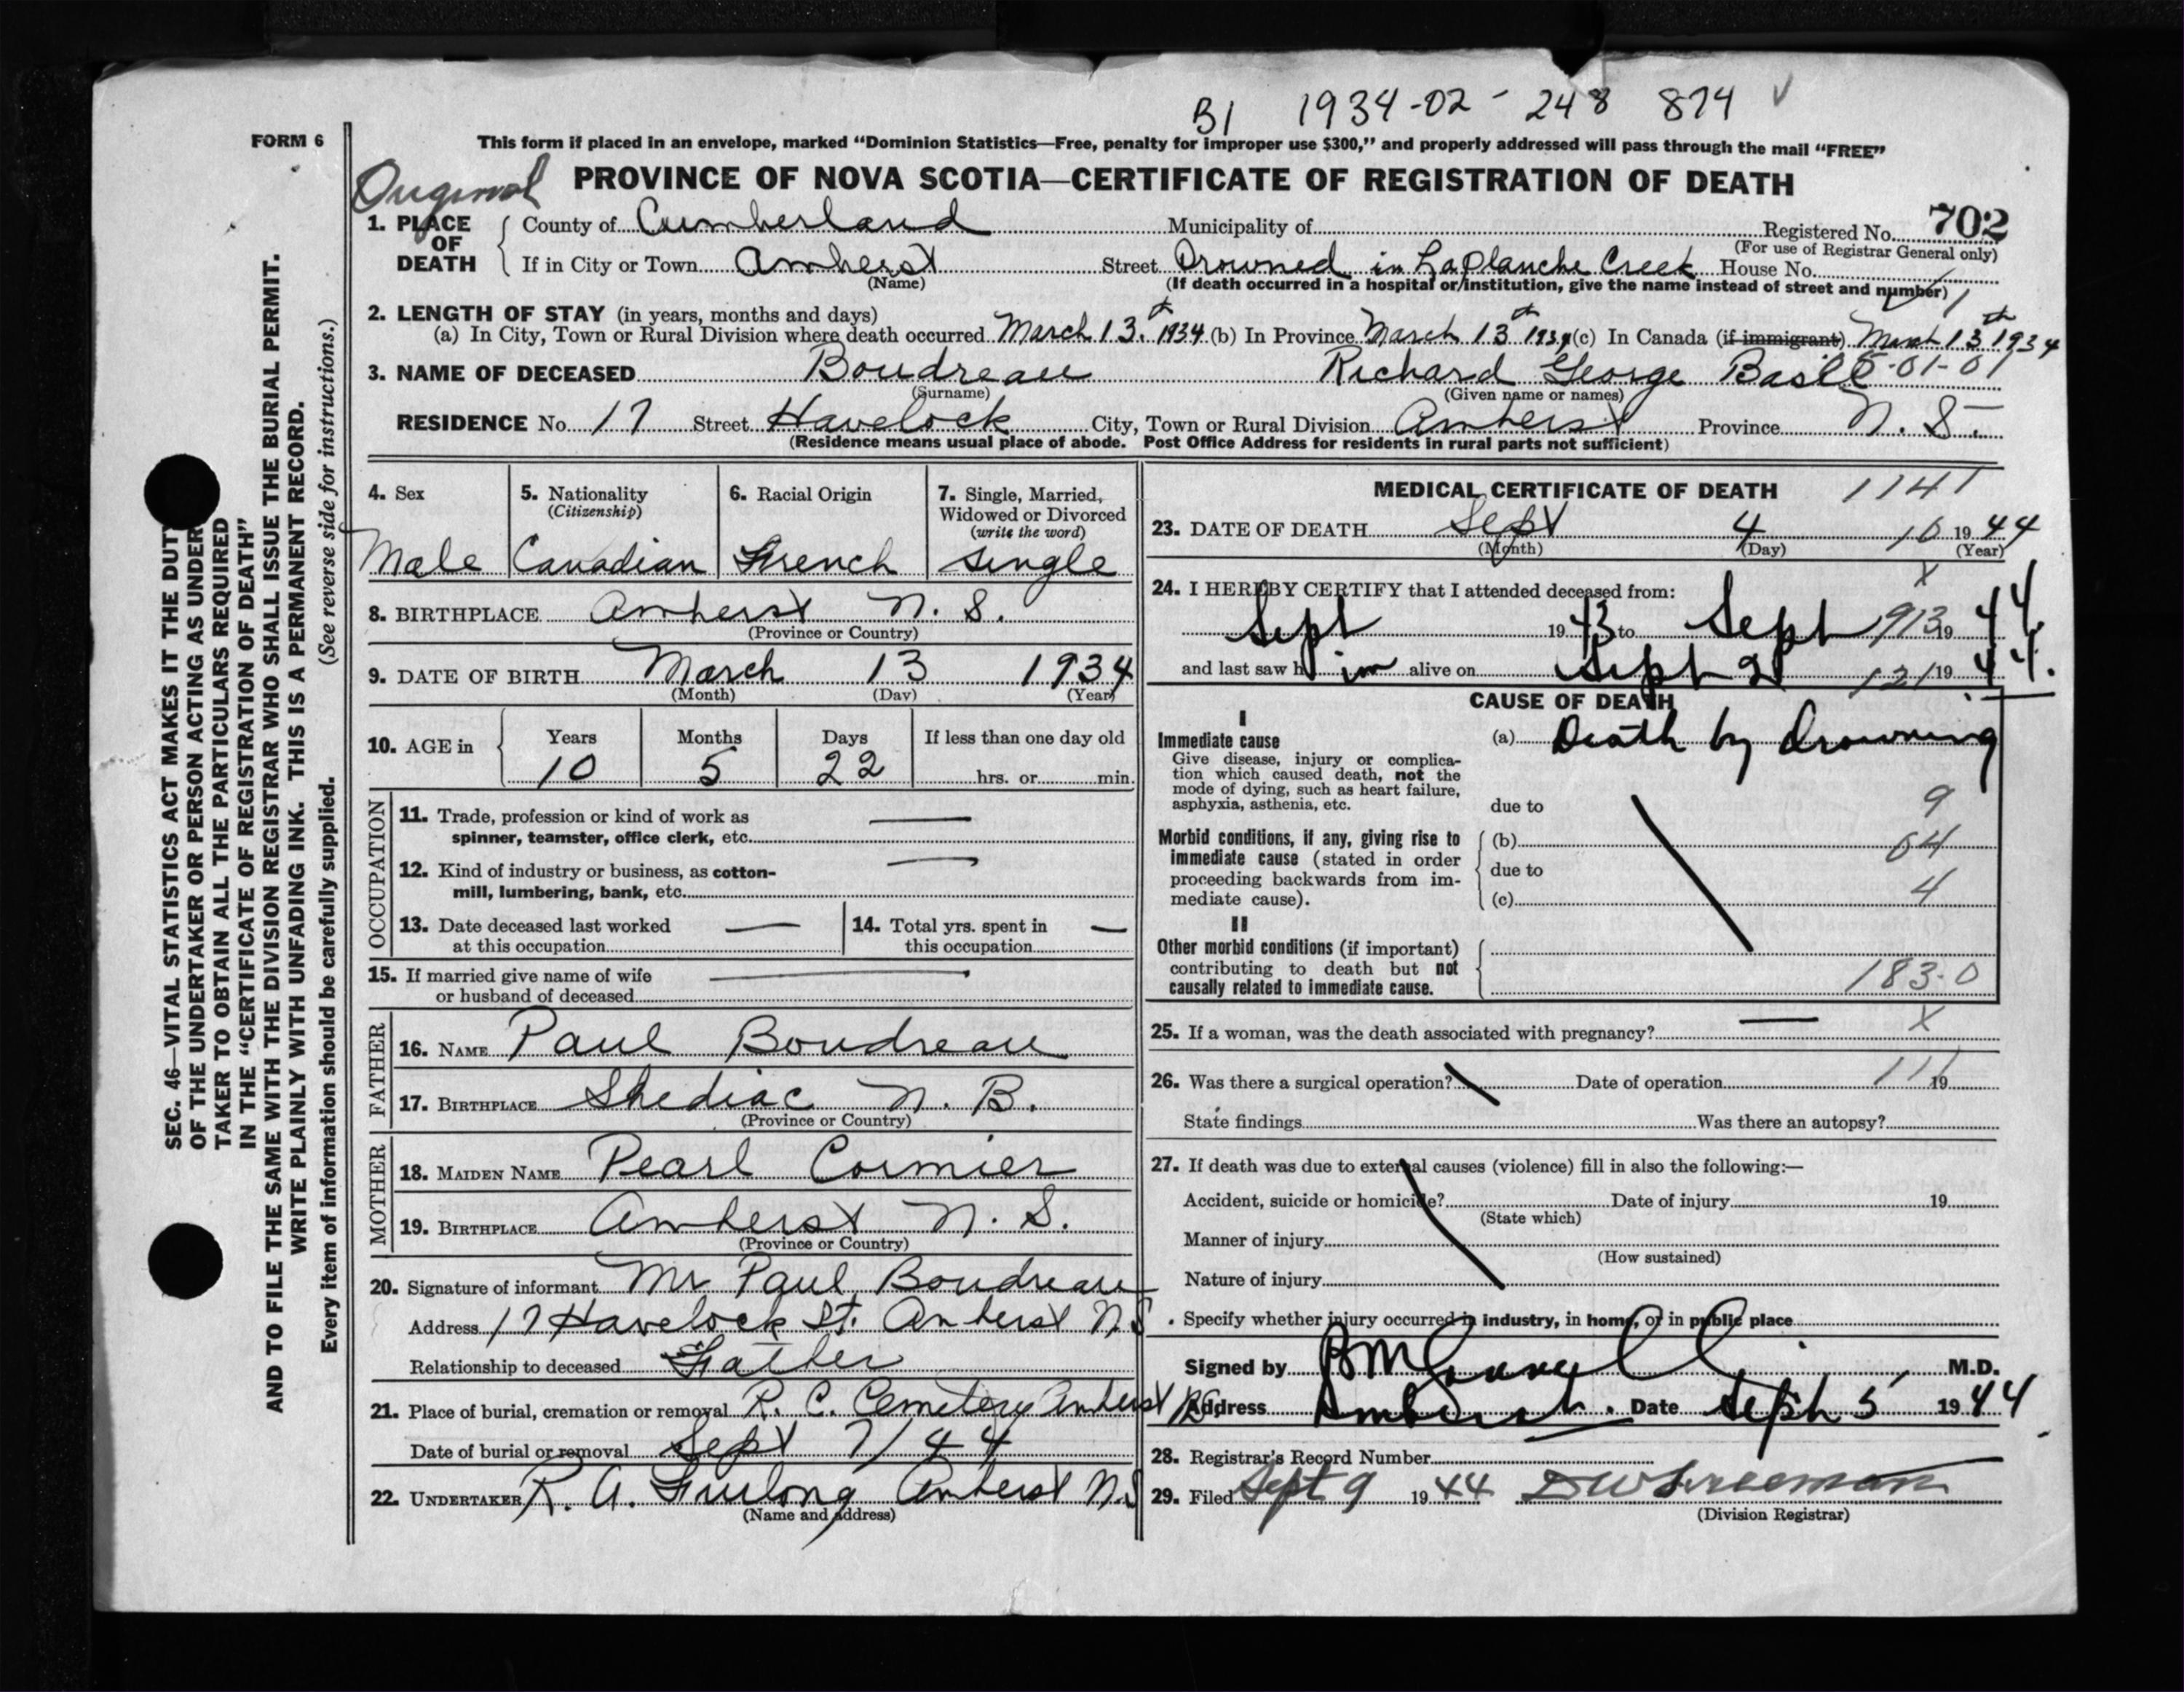 B1 1934-02-248 874
FORM 6
This form if placed in an envelope, marked “Dominion Statistics—Free, penalty for improper use $300,” and properly addressed will pass through the mail “FREE”
Original PROVINCE OF NOVA SCOTIA—CERTIFICATE OF REGISTRATION OF DEATH
1. PLACE OF DEATH County of Cumberland Municipality of Registered No. 702
(For use of Registrar General only)
If in City or Town Amherst Street Drowned in LaPlanche Creek House No.
(Name) (If death occurred in a hospital or institution, give the name instead of street and number)
2. LENGTH OF STAY (in years, months and days)
(a) In City, Town or Rural Division where death occurred March 13th 1934 (b) In Province March 13th 1934 (c) In Canada (if immigrant) March 13th 1934
3. NAME OF DECEASED Boudreau Richard George Basil 5-01-01
(Surname) (Given name or names)
RESIDENCE No. 17 Street Havelock City, Town or Rural Division Amherst Province N. S.
(Residence means usual place of abode. Post Office Address for residents in rural parts not sufficient)
4. Sex
Male
5. Nationality
(Citizenship)
Canadian
6. Racial Origin
French
7. Single, Married,
Widowed or Divorced
(write the word)
single
8. BIRTHPLACE Amherst N. S.
(Province or Country)
9. DATE OF BIRTH March 13 1934
(Month) (Day) (Year)
10. AGE in Years Months Days If less than one day old
10 5 22 hrs. or min.
OCCUPATION
11. Trade, profession or kind of work as
spinner, teamster, office clerk, etc. —
12. Kind of industry or business, as cotton-
mill, lumbering, bank, etc. —
13. Date deceased last worked
at this occupation —
14. Total yrs. spent in
this occupation —
15. If married give name of wife
or husband of deceased —
FATHER
16. NAME Paul Boudreau
17. BIRTHPLACE Shediac N. B.
(Province or Country)
MOTHER
18. MAIDEN NAME Pearl Cormier
19. BIRTHPLACE Amherst N. S.
(Province or Country)
20. Signature of informant Mr Paul Boudreau
Address 17 Havelock St. Amherst N S
Relationship to deceased Father
21. Place of burial, cremation or removal R. C. Cemetery Amherst
Date of burial or removal Sept 7/44
22. UNDERTAKER R. A. Furlong Amherst N.S
(Name and address)
MEDICAL CERTIFICATE OF DEATH 1141
23. DATE OF DEATH Sept 4 10 1944
(Month) (Day) (Year)
X
24. I HEREBY CERTIFY that I attended deceased from:
Sept 1943 to Sept 913 1944
and last saw him alive on Sept 2 121 1944.
CAUSE OF DEATH
I
Immediate cause
Give disease, injury or complica-
tion which caused death, not the
mode of dying, such as heart failure,
asphyxia, asthenia, etc.
(a) Death by drowning
due to 9
Morbid conditions, if any, giving rise to
immediate cause (stated in order
proceeding backwards from im-
mediate cause).
(b) 64
due to
(c) 4
II
Other morbid conditions (if important)
contributing to death but not
causally related to immediate cause.
183.0
25. If a woman, was the death associated with pregnancy? — X
26. Was there a surgical operation? Date of operation 111 19
State findings Was there an autopsy?
27. If death was due to external causes (violence) fill in also the following:—
Accident, suicide or homicide? Date of injury 19
(State which)
Manner of injury
(How sustained)
Nature of injury
Specify whether injury occurred in industry, in home, or in public place
Signed by M.D.
Address Amherst. Date Sept 5 1944
28. Registrar's Record Number
29. Filed Sept 9 1944 D W Freeman
(Division Registrar)
SEC. 46—VITAL STATISTICS ACT MAKES IT THE DUTY
OF THE UNDERTAKER OR PERSON ACTING AS UNDER
TAKER TO OBTAIN ALL THE PARTICULARS REQUIRED
IN THE “CERTIFICATE OF REGISTRATION OF DEATH”
AND TO FILE THE SAME WITH THE DIVISION REGISTRAR WHO SHALL ISSUE THE BURIAL PERMIT.
WRITE PLAINLY WITH UNFADING INK. THIS IS A PERMANENT RECORD.
Every item of information should be carefully supplied. (See reverse side for instructions.)